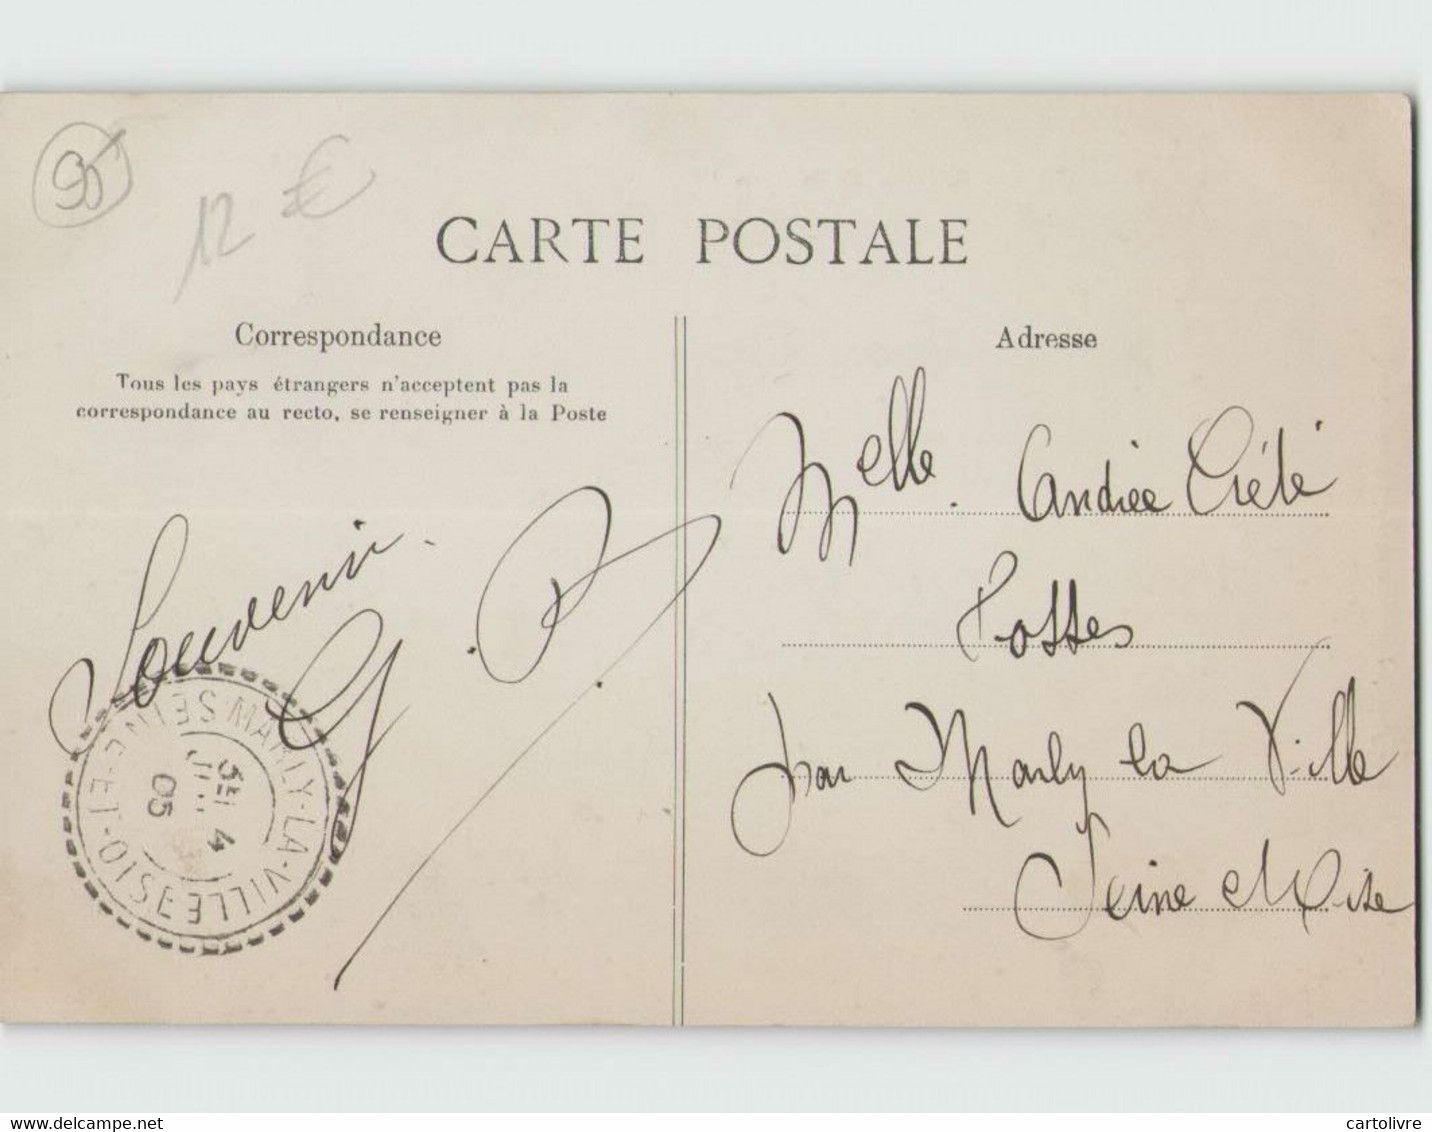 95
12 €
CARTE POSTALE
Correspondance
Tous les pays étrangers n'acceptent pas la
correspondance au recto, se renseigner à la Poste
Souvenir.
G. P.
MARLY-LA-VILLE
SEINE-ET-OISE
4
05
Adresse
Melle. Andrée Crété
Fosses
par Marly la Ville
Seine et Oise
www.delcampe.net
cartolivre